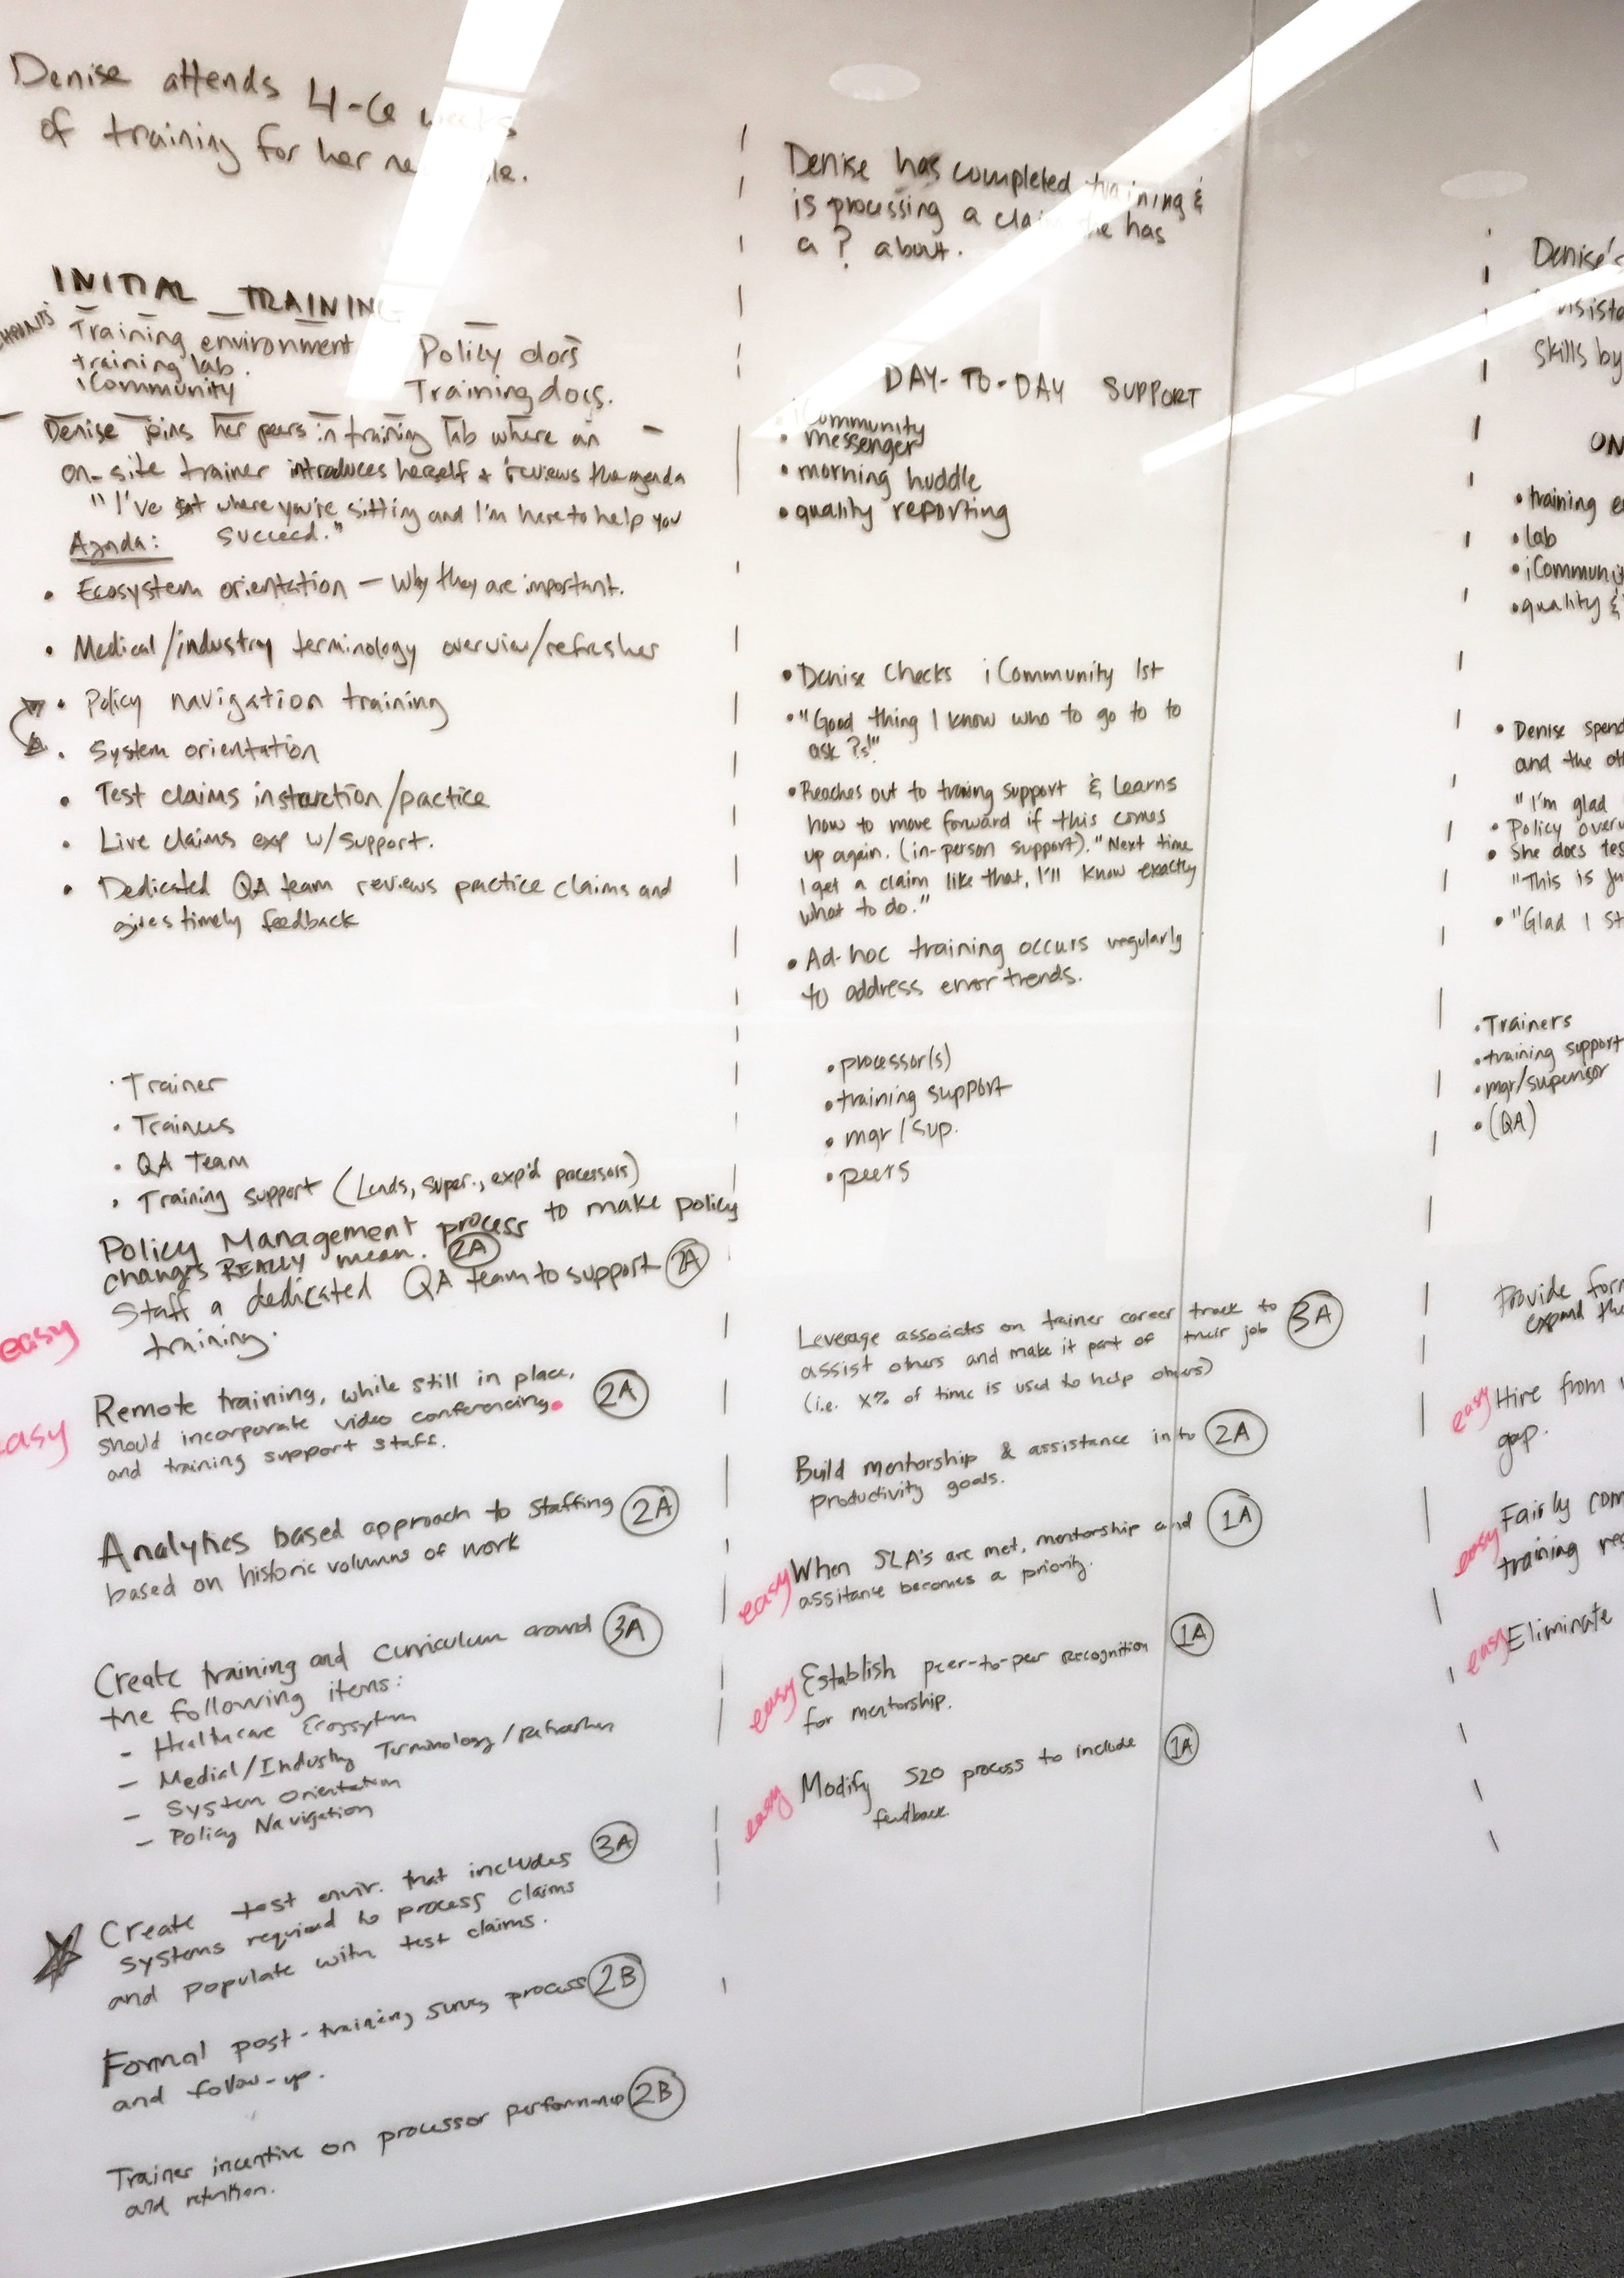 Denise attends 4-6 weeks
of training for her
INITIAL TRAINING
Training environment
training lab.
iCommunity
Policy docs
Training docs.
Denise joins her peers in training lab where an
on-site trainer introduces herself + reviews the agenda
"I've sat where you're sitting and I'm here to help you
succeed."
Agnda:
• Ecosystem orientation – Why they are important.
• Medical/industry terminology overview/refresher
• Policy navigation training
• System orientation
• Test claims instruction/practice
• Live claims exp w/support.
• Dedicated QA team reviews practice claims and
gives timely feedback
• Trainer
• Trainees
• QA Team
• Training support (Leads, super., exp'd processors)
Policy Management process to make policy
changes REALLY mean. 2A
Staff a dedicated QA team to support 2A
easy
training.
Remote training, while still in place, 2A
easy
should incorporate video conferencing.
and training support staff.
Analytics based approach to staffing 2A
based on historic volumes of work
Create training and curriculum around 3A
the following items:
- Healthcare Ecosystem
- Medial/Industry Terminology/Refresher
- System Orientation
- Policy Navigation
Create test envir. that includes 3A
systems required to process claims
and populate with test claims.
Formal post-training survey process 2B
and follow-up.
Trainer incentive on processor performance 2B
and retention.
Denise has completed training &
is processing a claim she has
a ? about.
DAY-TO-DAY SUPPORT
• iCommunity
• messenger
• morning huddle
• quality reporting
• Denise checks iCommunity 1st
• "Good thing I know who to go to to
ask ?s!"
• Reaches out to training support & Learns
how to move forward if this comes
up again. (in-person support). "Next time
I get a claim like that, I'll know exactly
what to do."
• Ad-hoc training occurs regularly
to address error trends.
• processor(s)
• training support
• mgr/sup.
• peers
Leverage associates on trainer career track to 3A
assist others and make it part of their job
(i.e. X% of time is used to help others)
Build mentorship & assistance into 2A
productivity goals.
easy When SLA's are met, mentorship and 1A
assitance becomes a priority.
easy Establish peer-to-peer recognition 1A
for mentorship.
easy Modify S20 process to include 1A
feedback
Denise's
skills by
ON
• training
• lab
• iCommuni
• quality &
• Denise spend
and the
"I'm glad
• Policy over
• She does
"This is
• "Glad I
• Trainers
• training support
• mgr/supervisor
• (QA)
Provide
expand
easy Hire from
gap.
easy Fairly
training
easy Eliminate